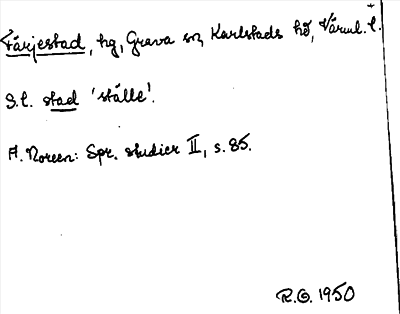 Färjestad, hg, Grava sn, Karlstads hd, Värml. l.
S.l. stad 'ställe'.
A. Noreen: Spr. studier II, s. 85.
R.O. 1950